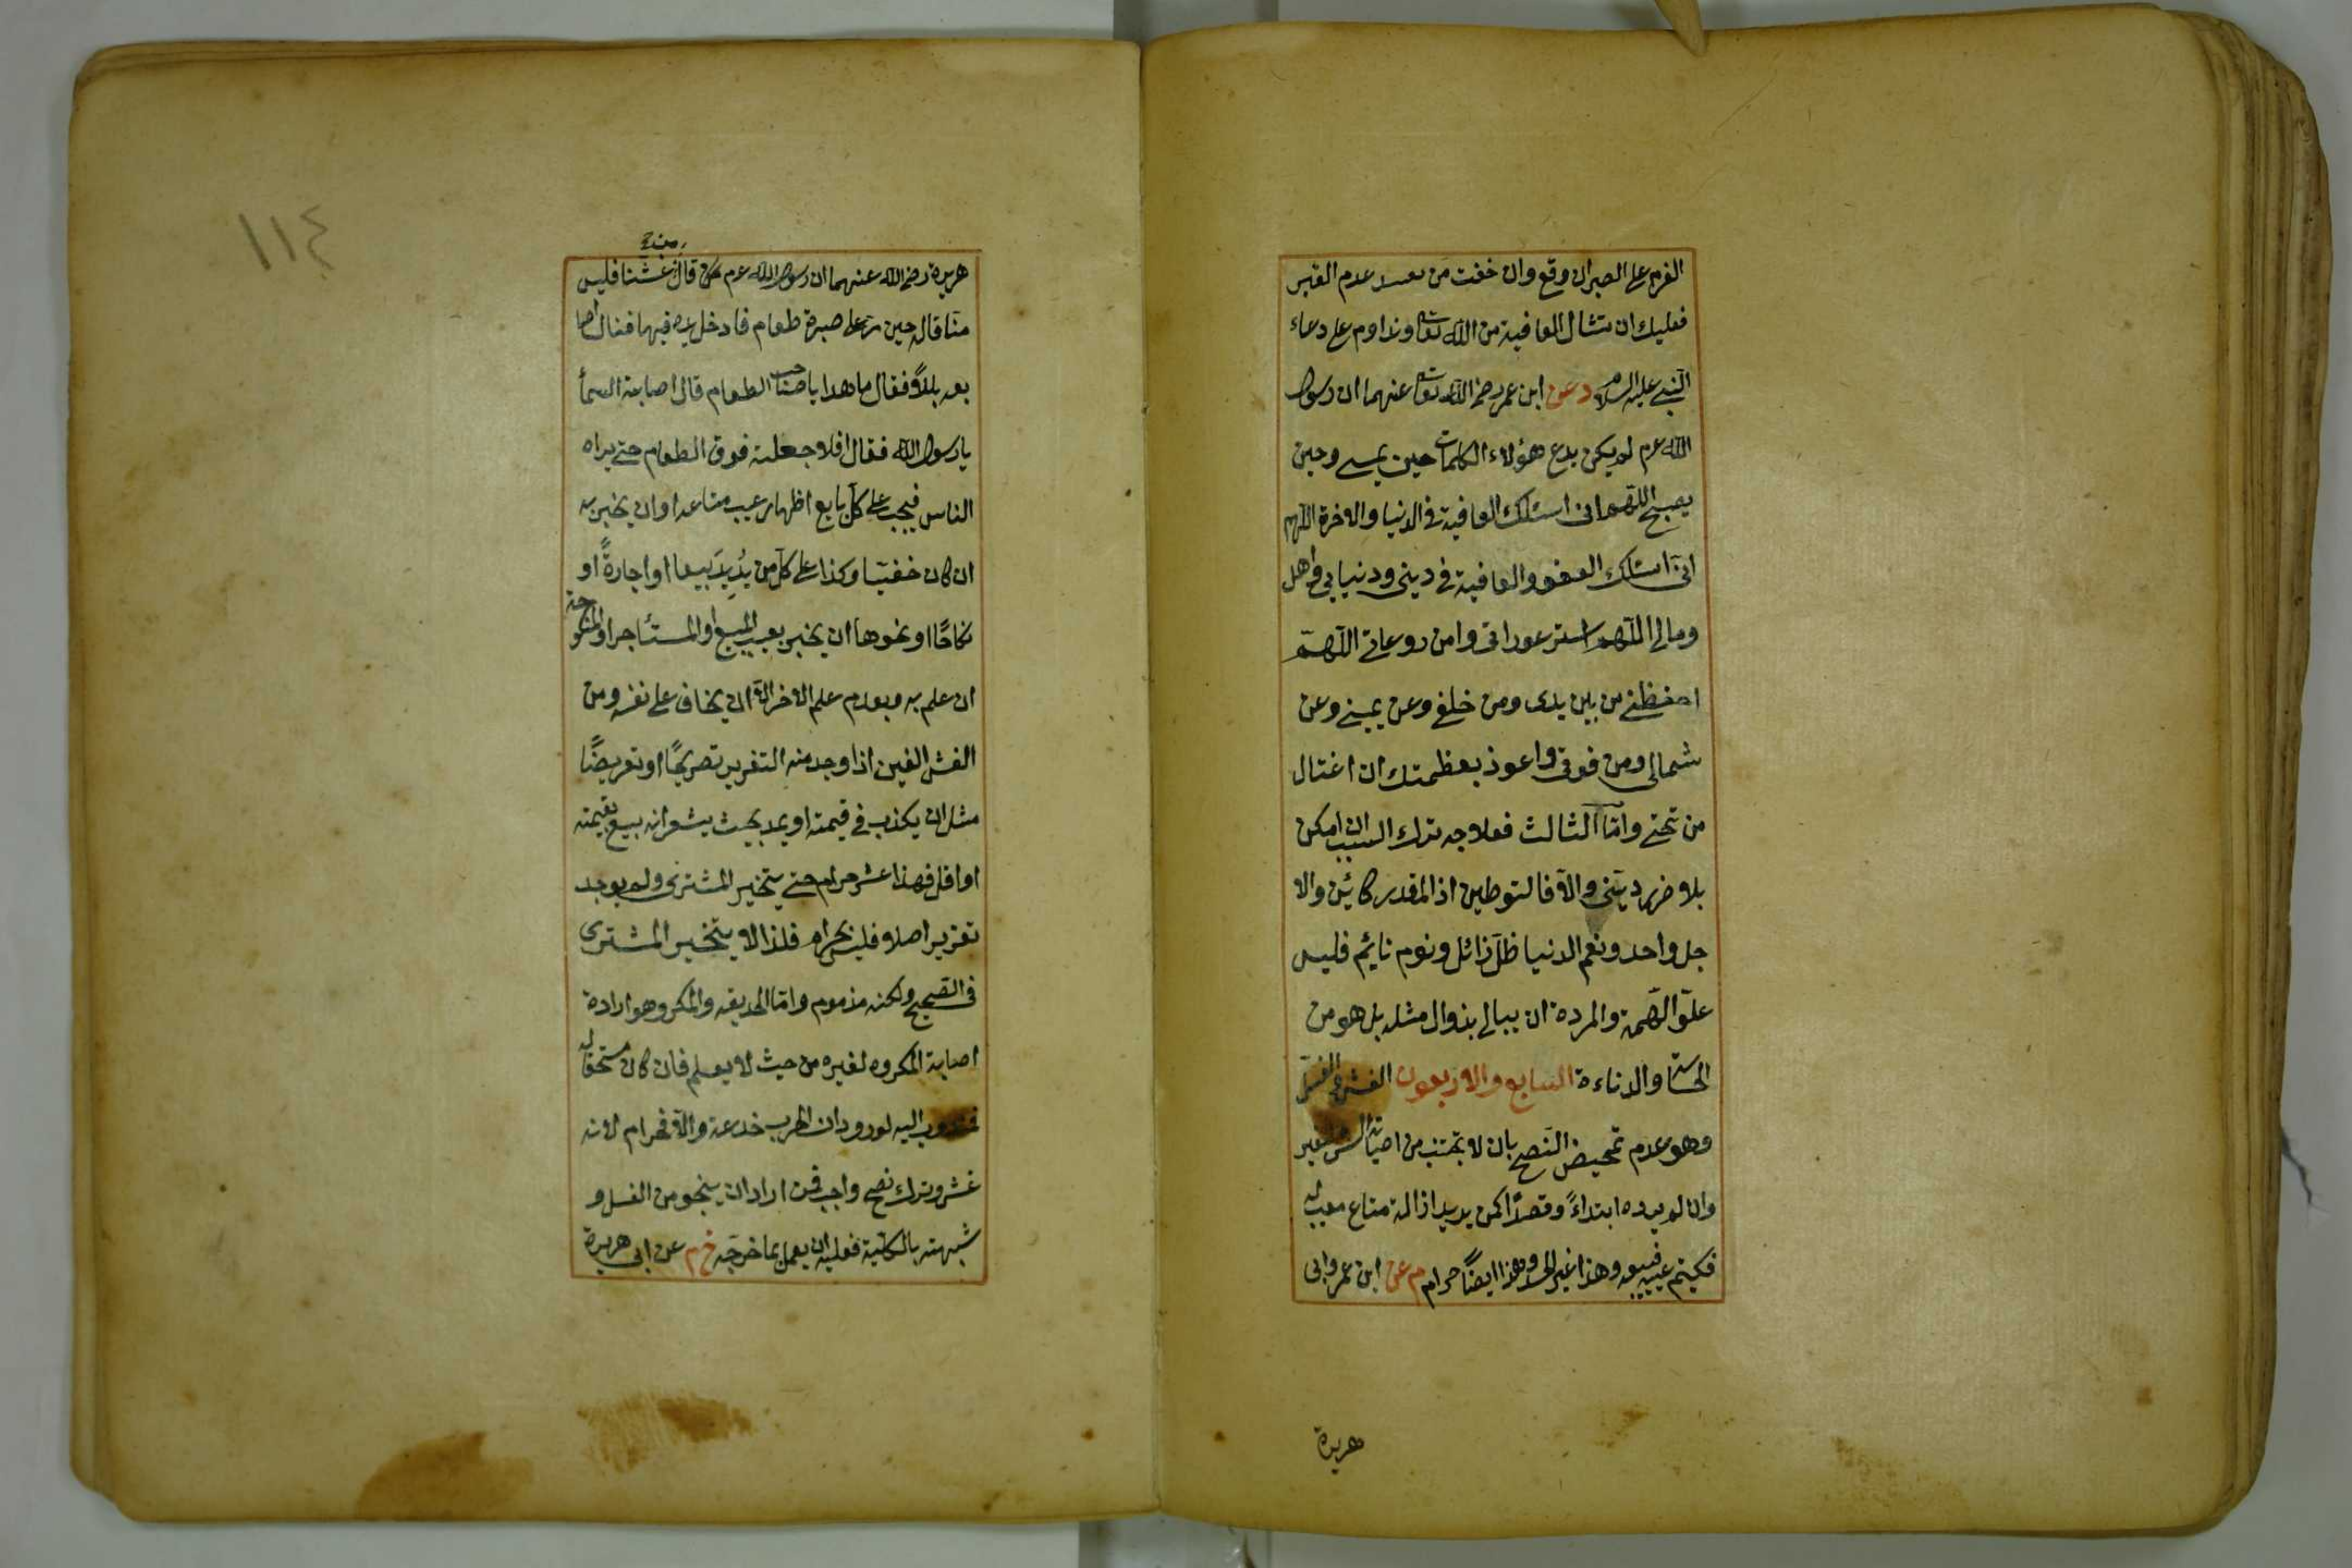 العزم على الصبر ان وقع وان خفت من نفسك عدم القبر
فعليك ان تسأل العافية من الله تعا وتداوم على دعاء
النبي عليه السلام د عن ابن عمر رضى الله تعا عنهما ان رسول
الله عم لم يكن يدع هؤلاء الكلمات حين يمسى وحين
يصبح اللهم انى اسئلك العافية فى الدنيا والاخرة اللهم
انى اسئلك العفو والعافية فى دينى ودنيايى واهل
ومالى اللهم استر عوراتى وامن روعاتى اللهم
احفظنى من بين يدى ومن خلفى وعن يمينى وعن
شمالى ومن فوقى واعوذ بعظمتك ان اغتال
من تحتى واما الثالث فعلاجه ترك السبب ان امكن
بلا ضرر دينى والا فالتوطين اذ المقدر كائن والا
جل واحد ونعم الدنيا ظل زائل ونوم نائم فليس
علو الهمة والمردة ان يبالى بزوال مثله بل هو من
الخساسة والدناءة السابع والاربعون الغش والغل
وهو عدم تمحيض النصح بان لا يجتنب من اصابة الشر لغير
وان لم يرده ابتداءً وقصدًا كمن يريد ازالة متاع معيب له
فكيتم عيبه فيبيعه وهذا غير الحسد وهذا ايضًا حرام م عن ابن عمر وابى
هريرة
١١٤
هريرة رضى الله عنهما ان رسول الله عم قال من غشنا فليس
منا قاله حين مر على صبرة طعام فادخل يده فيها فنال اصا
بعه بللاً فقال ما هذا يا صاحب الطعام قال اصابته السمأ
يا رسول الله فقال افلا جعلته فوق الطعام حتى يراه
الناس فيجب على كل بايع اظهار عيب متاعه او ان يخبر به
ان كان خفيا وكذا على كل من يُريد بيعا او اجارةً او
نكاحًا او نحوها ان يخبر بعيب المبيع او المستأجر او المنكوحة
ان علم به وبعدم علم الاخر الا ان يخاف على نفسه ومن
الغش الغبن اذا وجد منه التغرير تصريحًا او تعريضًا
مثل ان يكذب فى قيمته او يمد بحيث يشعر انه يبيع بقيمته
او اقل فهذا غش حرام حتى يتخير المشترى ولم يوجد
تغرير اصلا فليس بحرام فلذا لا يتخير المشترى
فى الصحيح ولكنه مذموم واما الخديعة والمكر وهو ارادة
اصابة المكروه لغيره من حيث لا يعلم فان كان مستحقا له
فمندوب اليه لورود ان الحرب خدعة والا فحرام لانه
غش وترك نصح واجب فمن اراد ان ينجو من الغل و
شبهته بالكلية فعليه ان يعمل بما خرجه خ م عن ابى هريرة